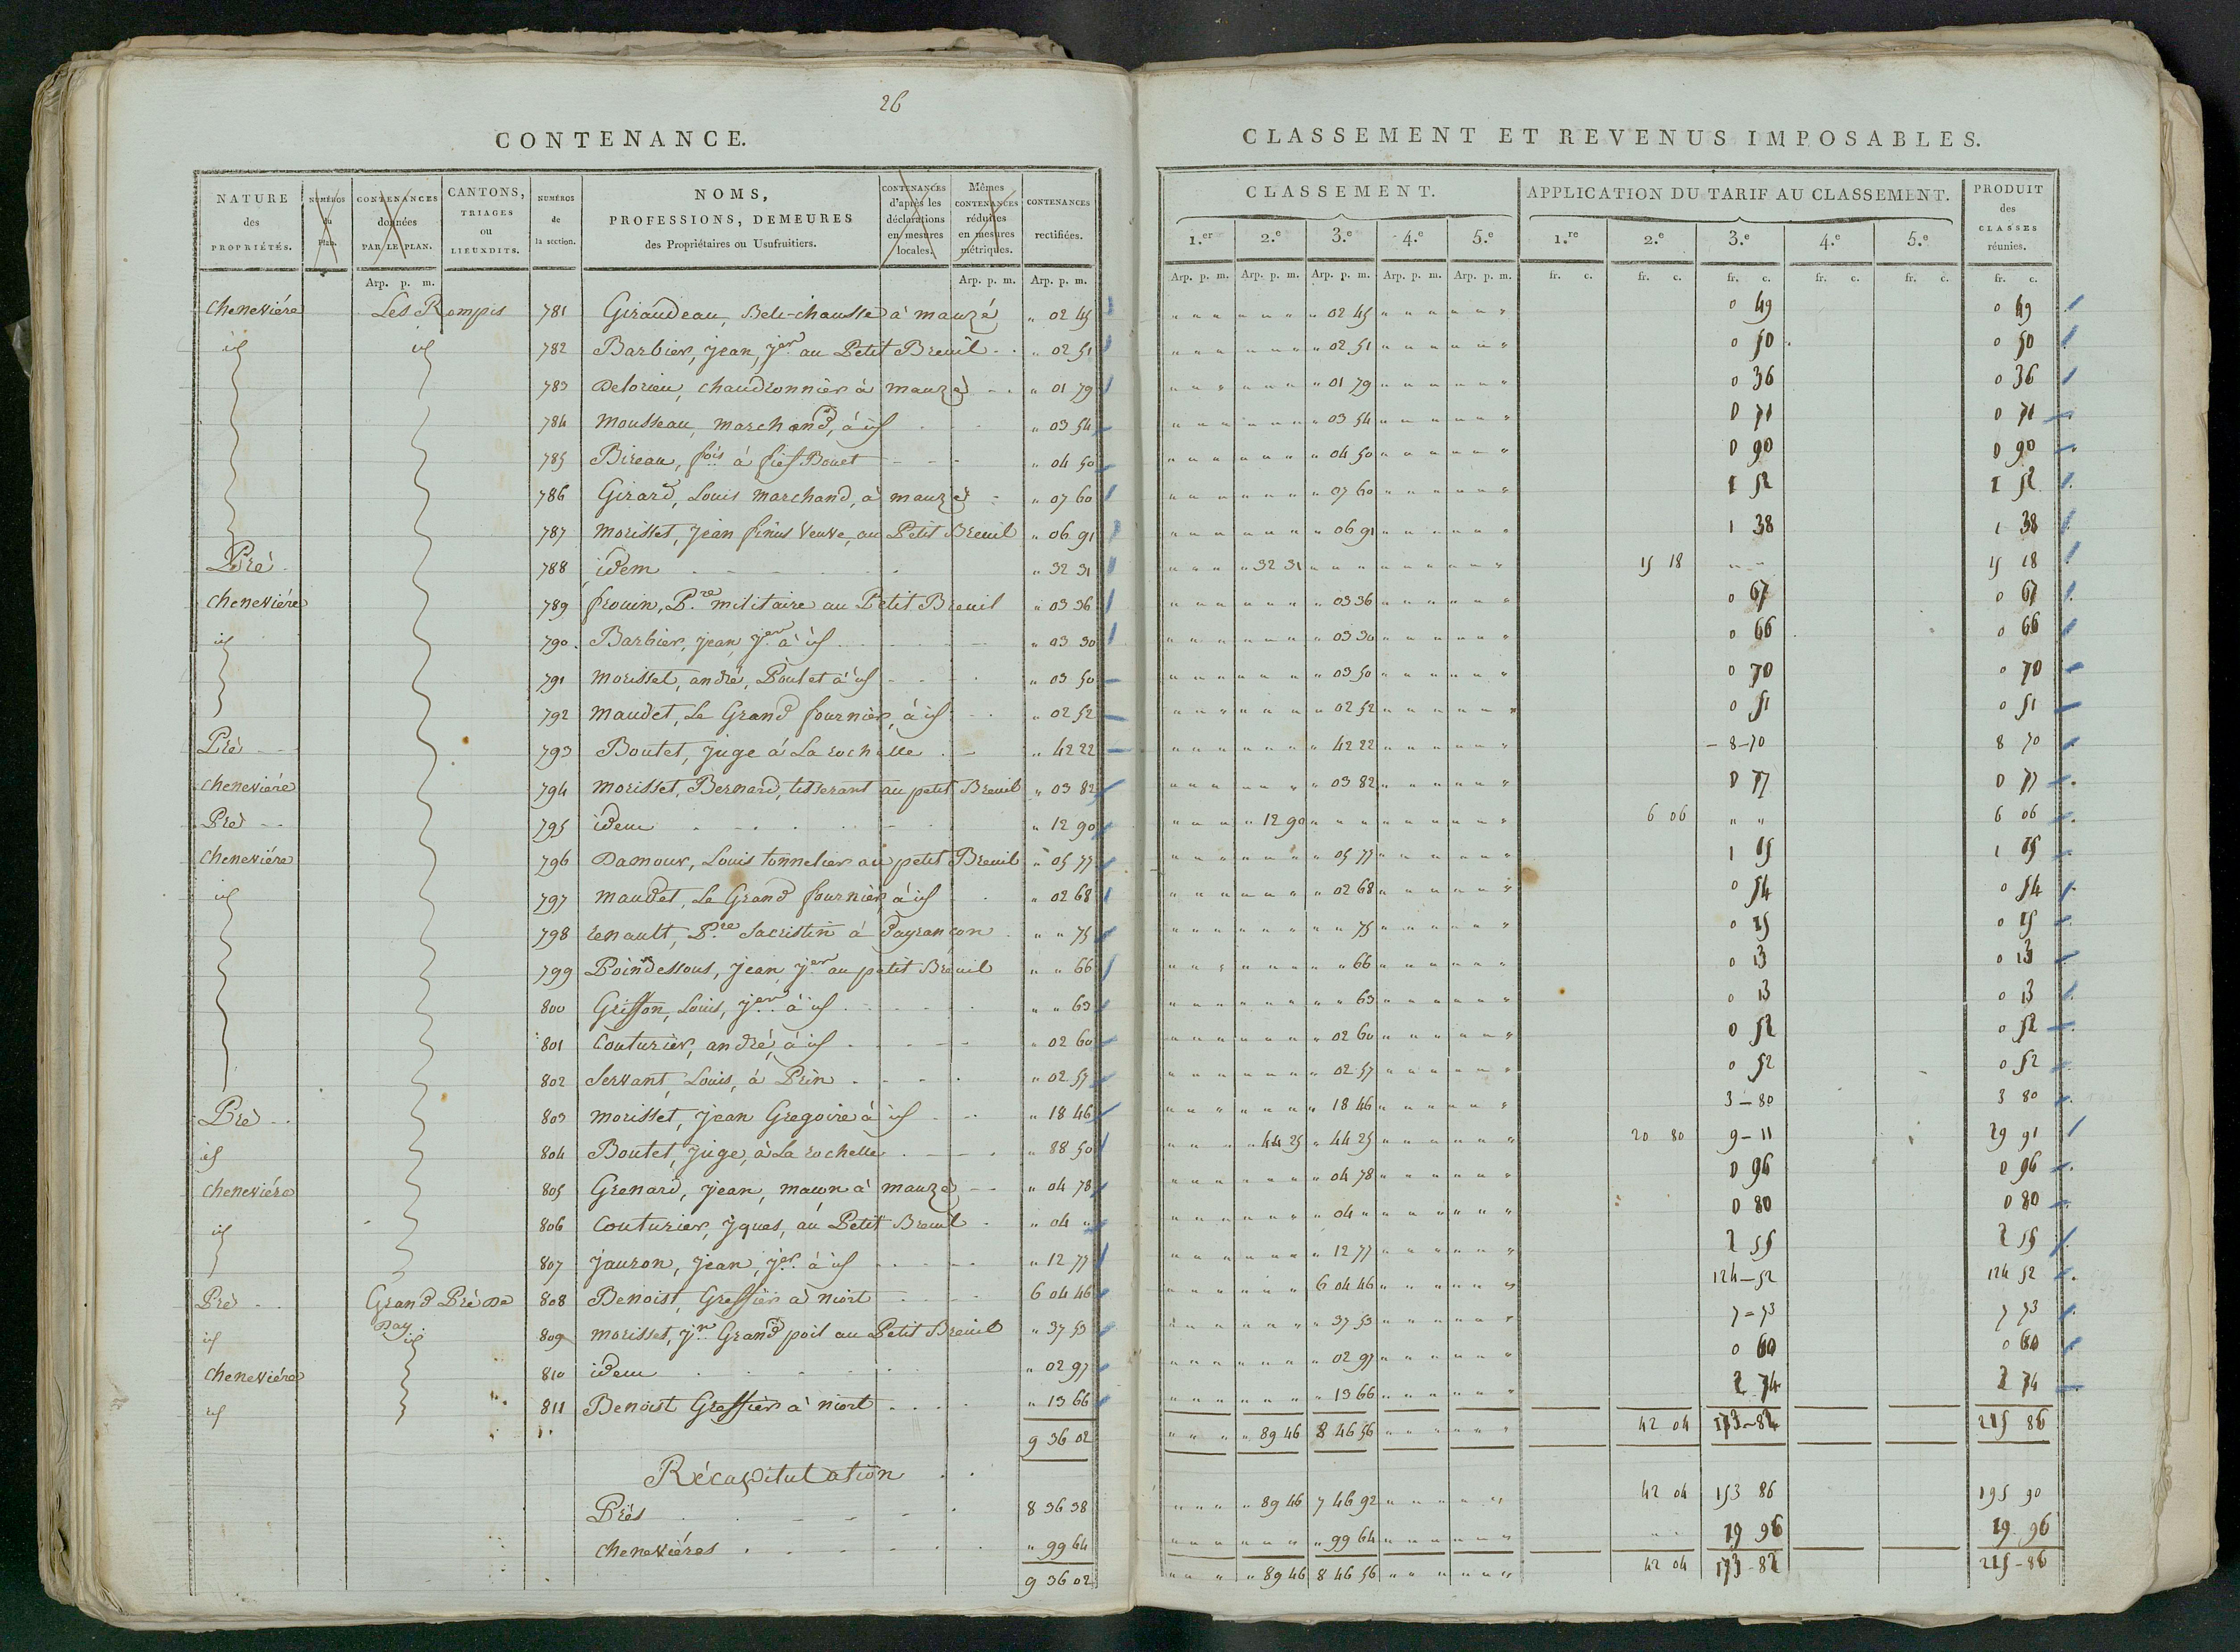 26
CONTENANCE.
CLASSEMENT ET REVENUS IMPOSABLES.
NATURE des PROPRIÉTÉS. NUMÉROS du Plan. CONTENANCES données PAR LE PLAN. CANTONS, TRIAGES ou LIEUXDITS. NUMÉROS de la section. NOMS, PROFESSIONS, DEMEURES des Propriétaires ou Usufruitiers. CONTENANCES d'après les déclarations en mesures locales. Mêmes CONTENANCES réduites en mesures métriques. CONTENANCES rectifiées.
CLASSEMENT. APPLICATION DU TARIF AU CLASSEMENT. PRODUIT des CLASSES réunies.
1.er 2.e 3.e 4.e 5.e 1.re 2.e 3.e 4.e 5.e
Arp. p. m. Arp. p. m. Arp. p. m. Arp. p. m. Arp. p. m. Arp. p. m. Arp. p. m. Arp. p. m. fr. c. fr. c. fr. c. fr. c. fr. c. fr. c.
Cheneviére Les Rompis 781 Giraudeau, Bele-chausse à mauzé " 02 45 " 02 45 0 49 0 49
id id 782 Barbier, jean, jer au Petit Breuil " 02 51 " 02 51 0 50 0 50
783 Delorieu, chaudronnier à mauzé " 01 79 " 01 79 0 36 0 36
784 Mousseau, marchand, à id " 03 54 " 03 54 0 71 0 71
785 Bireau, fois à fief Bouet " 04 50 " 04 50 0 90 0 90
786 Girard, Louis marchand, à mauzé " 07 60 " 07 60 1 52 1 52
787 Morisset, jean finus veuve, au Petit Breuil " 06 91 " 06 91 1 38 1 38
Pré 788 idem " 32 31 " 32 31 15 18 15 18
Cheneviére 789 frouin, P.re militaire au Petit Breuil " 03 36 " 03 36 0 67 0 67
id 790 Barbier, jean, jer à id " 03 30 " 03 30 0 66 0 66
791 Morisset, andré, Poulet à id " 03 50 " 03 50 0 70 0 70
792 Maudet, Le Grand fournier, à id " 02 52 " 02 52 0 51 0 51
Pré 793 Boutet, juge à La rochelle " 42 22 " 42 22 8-70 8 70
Cheneviére 794 Morisset, Bernard, tisserant au petit Breuil " 03 82 " 03 82 0 77 0 77
Pré 795 idem " 12 90 " 12 90 6 06 " " 6 06
Cheneviére 796 Damour, Louis tonnelier au petit Breuil " 05 77 " 05 77 1 15 1 15
id 797 Maudet, Le Grand fournier, à id " 02 68 " 02 68 0 54 0 54
798 renault, P.re Sacristin à Dayrancon " " 75 " " 75 0 15 0 15
799 Poindessous, jean, jer au petit Breuil " " 66 " " 66 0 13 0 13
800 Griffon, Louis, jer à id " " 63 " " 63 0 13 0 13
801 Couturier, andré, à id " 02 60 " 02 60 0 52 0 52
802 Servant, Louis, à Prin " 02 57 " 02 57 0 52 0 52
Pré 803 Morisset, jean Gregoire à id " 18 46 " 18 46 3-80 3 80
id 804 Boutet, juge, à La rochelle " 88 50 " 44 25 " 44 25 20 80 9-11 29 91
Cheneviére 805 Grenard, jean, macon à mauzé " 04 78 " 04 78 0 96 0 96
id 806 Couturier, jques, au Petit Breuil " 04 " " 04 " 0 80 0 80
807 jauron, jean, jer à id " 12 77 " 12 77 2 55 2 55
Pré Grand Pré De Day 808 Benoist, Greffier à niort 6 04 46 6 04 46 124-52 124 52
id id 809 Morisset, jn Grand poil au Petit Breuil " 37 53 " 37 53 7-73 7 73
Cheneviére 810 idem " 02 97 " 02 97 0 60 0 60
id 811 Benoist Greffier à niort " 13 66 " 13 66 2 74 2 74
9 36 02 " 89 46 8 46 56 42 04 173-82 215 86
Récapitulation
Prés 8 36 38 " 89 46 7 46 92 42 04 153 86 195 90
Cheneviéres " 99 64 " 99 64 19 96 19 96
9 36 02 " 89 46 8 46 56 42 04 173-82 215-86